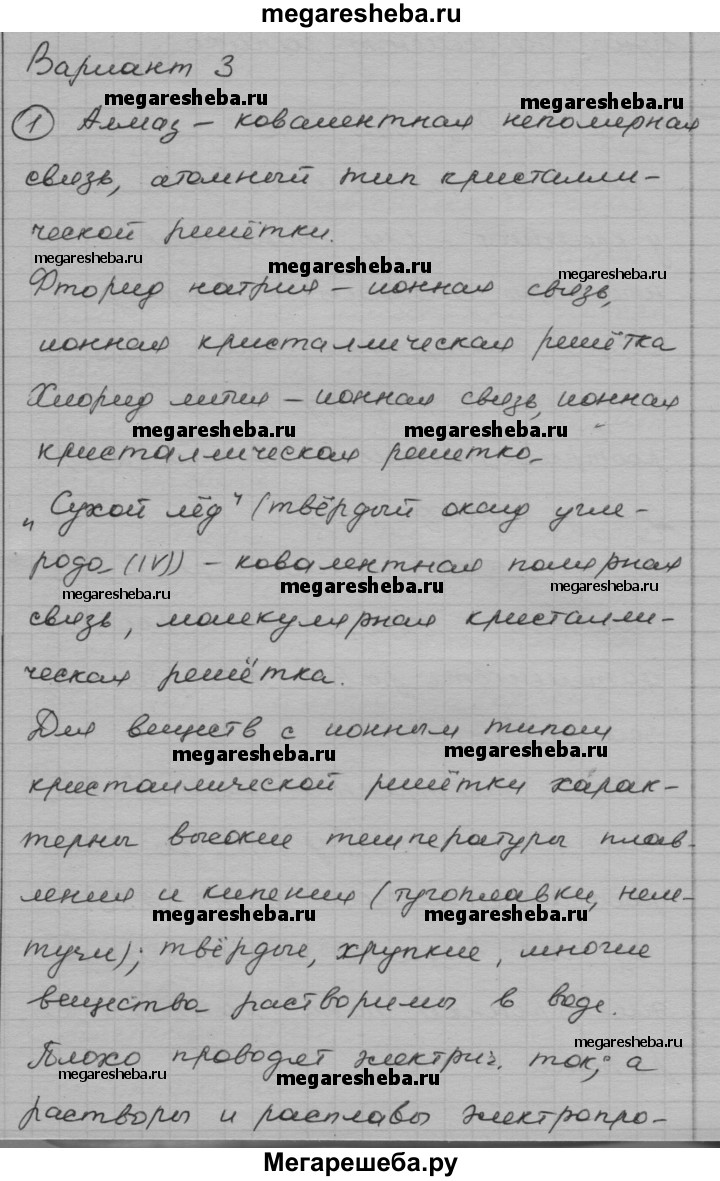 megaresheba.ru
Вариант 3
megaresheba.ru megaresheba.ru
1 Алмаз – ковалентная неполярная
связь, атомный тип кристалли-
ческой решётки.
megaresheba.ru megaresheba.ru megaresheba.ru
Фторид натрия – ионная связь,
ионная кристаллическая решётка
Хлорид лития – ионная связь, ионная
megaresheba.ru megaresheba.ru
кристаллическая решетка
„Сухой лёд" (твёрдый оксид угле-
рода (IV)) – ковалентная полярная
megaresheba.ru megaresheba.ru megaresheba.ru
связь, молекулярная кристалли-
ческая решётка.
Для веществ с ионным типом
megaresheba.ru megaresheba.ru
кристаллической решётки харак-
терны высокие температуры плав-
ления и кипения (тугоплавки, неле-
megaresheba.ru megaresheba.ru
тучи); твёрдые, хрупкие, многие
вещества растворимы в воде.
megaresheba.ru
Плохо проводят электрич. ток; а
megaresheba.ru megaresheba.ru
растворы и расплавы электропро-
Мегарешеба.ру